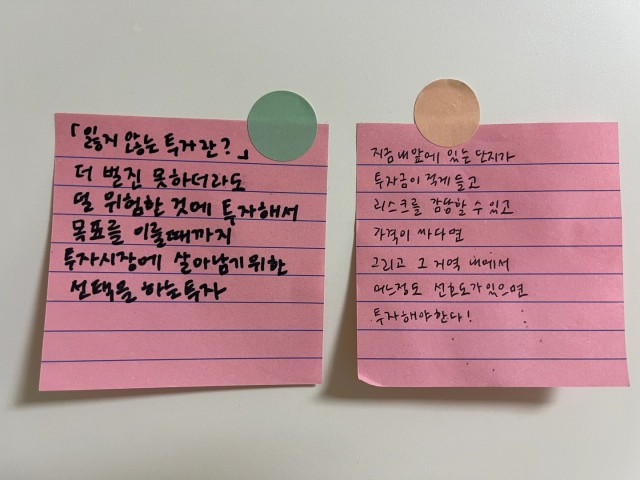 「잃지 않는 투자란?」
더 벌진 못하더라도
덜 위험한 것에 투자해서
목표를 이룰때까지
투자시장에 살아남기위한
선택을 하는투자
지금 내앞에 있는 단지가
투자금이 적게 들고
리스크를 감당할 수 있고
가격이 싸다면
그리고 그 지역 내에서
어느정도 선호도가있으면
투자해야한다!